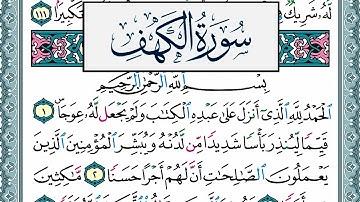 لَّهُۥ شَرِيكٌ تَكْبِيرًا ١١١
سُورَةُ الْكَهْفِ
بِسْمِ ٱللَّهِ ٱلرَّحْمَٰنِ ٱلرَّحِيمِ
ٱلْحَمْدُ لِلَّهِ ٱلَّذِىٓ أَنزَلَ عَلَىٰ عَبْدِهِ ٱلْكِتَٰبَ وَلَمْ يَجْعَل لَّهُۥ عِوَجَاۜ ١
قَيِّمًا لِّيُنذِرَ بَأْسًا شَدِيدًا مِّن لَّدُنْهُ وَيُبَشِّرَ ٱلْمُؤْمِنِينَ ٱلَّذِينَ
يَعْمَلُونَ ٱلصَّٰلِحَٰتِ أَنَّ لَهُمْ أَجْرًا حَسَنًا ٢ مَّٰكِثِينَ